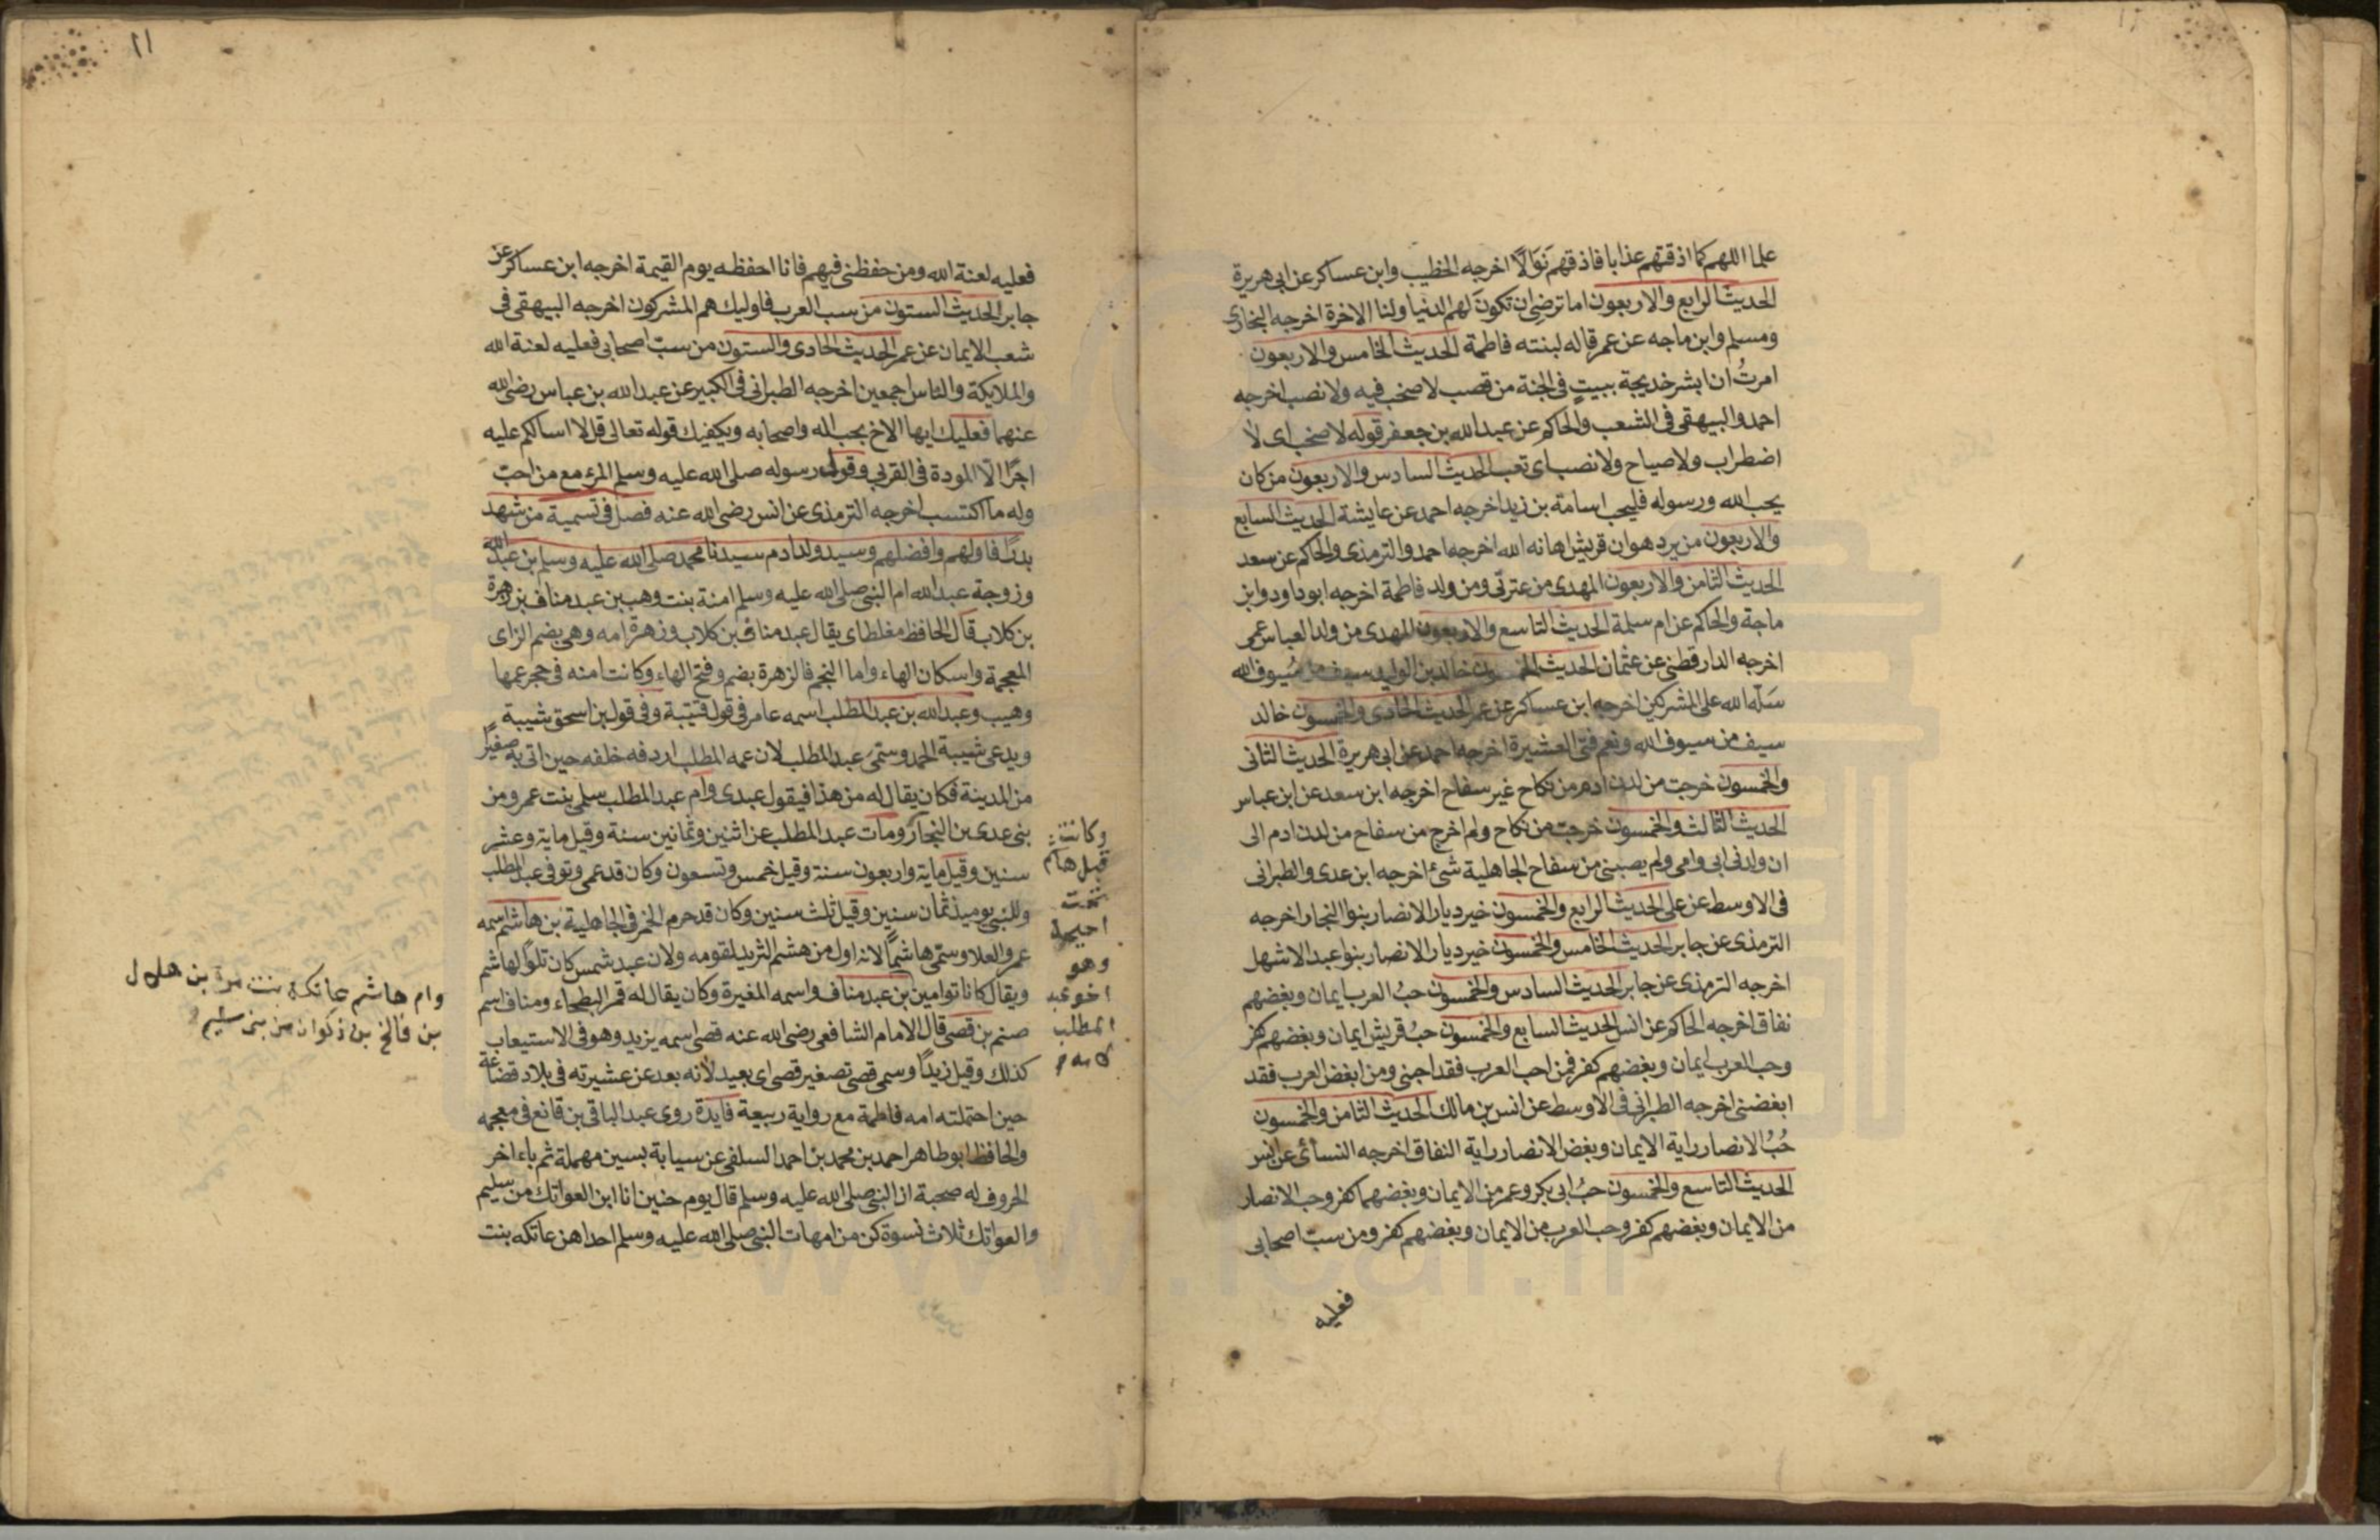 علما اللهم كما اذقتهم عذابا فاذقهم نوالًا اخرجه الخطيب وابن عساكر عن ابى هريرة
الحديث الرابع والاربعون اما ترضى ان تكون لهم الدنيا ولنا الاخرة اخرجه البخارى
ومسلم وابن ماجه عن عمر قاله لبنته فاطمة الحديث الخامس والاربعون
امرتُ ان ابشر خديجة ببيتٍ فى الجنة من قصب لا صخب فيه ولا نصب اخرجه
احمد والبيهقى فى الشعب والحاكم عن عبد الله بن جعفر قوله لا صخب اى لا
اضطراب ولا صياح ولا نصب اى تعب الحديث السادس والاربعون من كان
يحب الله ورسوله فليحب اسامة بن زيد اخرجه احمد عن عايشة الحديث السابع
والاربعون من يرد هوان قريش اهانه الله اخرجه احمد والترمذى والحاكم عن سعد
الحديث الثامن والاربعون المهدى من عترتى ومن ولد فاطمة اخرجه ابوداود وابن
ماجة والحاكم عن ام سلمة الحديث التاسع والاربعون المهدى من ولد العباس عمى
اخرجه الدارقطنى عن عثمان الحديث الخمسون خالد بن الوليد سيف من سُيوف الله
سَلّه الله على المشركين اخرجه ابن عساكر عن عمر الحديث الحادى والخمسون خالد
سيف من سيوف الله ونعم فتى العشيرة اخرجه احمد عن ابى هريرة الحديث الثانى
والخمسون خرجت من لدن ادم من نكاح غير سفاح اخرجه ابن سعد عن ابن عباس
الحديث الثالث والخمسون خرجت من نكاح ولم اخرج من سفاح من لدن ادم الى
ان ولدنى ابى وامى ولم يصبنى من سفاح الجاهلية شئ اخرجه ابن عدى والطبرانى
فى الاوسط عن على الحديث الرابع والخمسون خير ديار الانصار بنوا النجار اخرجه
الترمذى عن جابر الحديث الخامس والخمسون خير ديار الانصار بنوا عبد الاشهل
اخرجه الترمذى عن جابر الحديث السادس والخمسون حبُ العرب ايمان وبغضهم
نفاق اخرجه الحاكم عن انس الحديث السابع والخمسون حبُ قريش ايمان وبغضهم كفر
وحب العرب ايمان وبغضهم كفر فمن احب العرب فقد احبنى ومن ابغض العرب فقد
ابغضنى اخرجه الطبرانى فى الاوسط عن انس بن مالك الحديث الثامن والخمسون
حُبُ الانصار راية الايمان وبغض الانصار راية النفاق اخرجه النسائى عن انس
الحديث التاسع والخمسون حبُ ابى بكر وعمر من الايمان وبغضهما كفر وحب الانصار
من الايمان وبغضهم كفر وحب العرب من الايمان وبغضهم كفر ومن سبّ اصحابى
فعليه
١١
فعليه لعنة الله ومن حفظنى فيهم فانا احفظه يوم القيمة اخرجه ابن عساكر عن
جابر الحديث الستون من سب العرب فاوليك هم المشركون اخرجه البيهقى فى
شعب الايمان عن عمر الحديث الحادى والستون من سبّ اصحابى فعليه لعنة الله
والملايكة والناس اجمعين اخرجه الطبرانى فى الكبير عن عبد الله بن عباس رضى الله
عنهما فعليك ايها الاخ بحب اله واصحابه ويكفيك قوله تعالى قل لا اسالكم عليه
اجرًا الّا المودة فى القربى وقول رسوله صلى الله عليه وسلم المرء مع من احبّ
وله ما اكتسب اخرجه الترمذى عن انس رضى الله عنه فصل فى تسمية من شهد
بدرًا فاولهم وافضلهم وسيد ولد ادم سيدنا محمد صلى الله عليه وسلم بن عبد الله
وزوجة عبد الله ام النبى صلى الله عليه وسلم امنة بنت وهب بن عبد مناف بن زهرة
بن كلاب قال الحافظ مغلطاى يقال عبد مناف بن كلاب وزهرة امه وهى بضم الزاى
المعجمة واسكان الهاء واما النجم فالزهرة بضم وفتح الهاء وكانت امنه فى حجر عمها
وهيب وعبد الله بن عبد المطلب اسمه عامر فى قول قتيبة وفى قول بن اسحق شيبة
ويدعى شيبة الحمد وسمّى عبد المطلب لان عمه المطلب اردفه خلفه حين اتى به صغيرًا
من المدينة فكان يقال له من هذا فيقول عبدى وام عبد المطلب سلمى بنت عمرو من
بنى عدى بن النجار ومات عبد المطلب عن اثنين وثمانين سنة وقيل ماية وعشر
سنين وقيل ماية واربعون سنة وقيل خمس وتسعون وكان قد عمى وتوفى عبد المطلب
وللنبى يوميذ ثمان سنين وقيل ثلث سنين وكان قد حرم الخمر فى الجاهلية بن هاشم اسمه
عمرو العلا وسمّى هاشمًا لانه اول من هشم الثريد لقومه ولان عبد شمس كان تلوًا لهاشم
ويقال كانا توامين بن عبد مناف واسمه المغيرة وكان يقال له قمر البطحاء ومناف اسم
صنم بن قصى قال الامام الشافعى رضى الله عنه قصى اسمه يزيد وهو فى الاستيعاب
كذلك وقيل زيدًا وسمى قصى تصغير قصى اى بعيد لانه بعد عن عشيرته فى بلاد قضاعة
حين احتملته امه فاطمة مع رواية ربيعة فايدة روى عبد الباقى بن قانع فى معجمه
والحافظ ابو طاهر احمد بن محمد بن احمد السلفى عن سيابة بسين مهملة ثم باء اخر
الحروف له صحبة ان النبى صلى الله عليه وسلم قال يوم حنين انا ابن العواتك من سليم
والعواتك ثلاث نسوة كن من امهات النبى صلى الله عليه وسلم احداهن عاتكه بنت
وكانت
قبل هاشم
تحت
احيحة
وهو
اخو عبد
المطلب
لامه
وام هاشم عاتكة بنت مرة بن هلال
بن فالخ بن ذكوان من بنى سليم